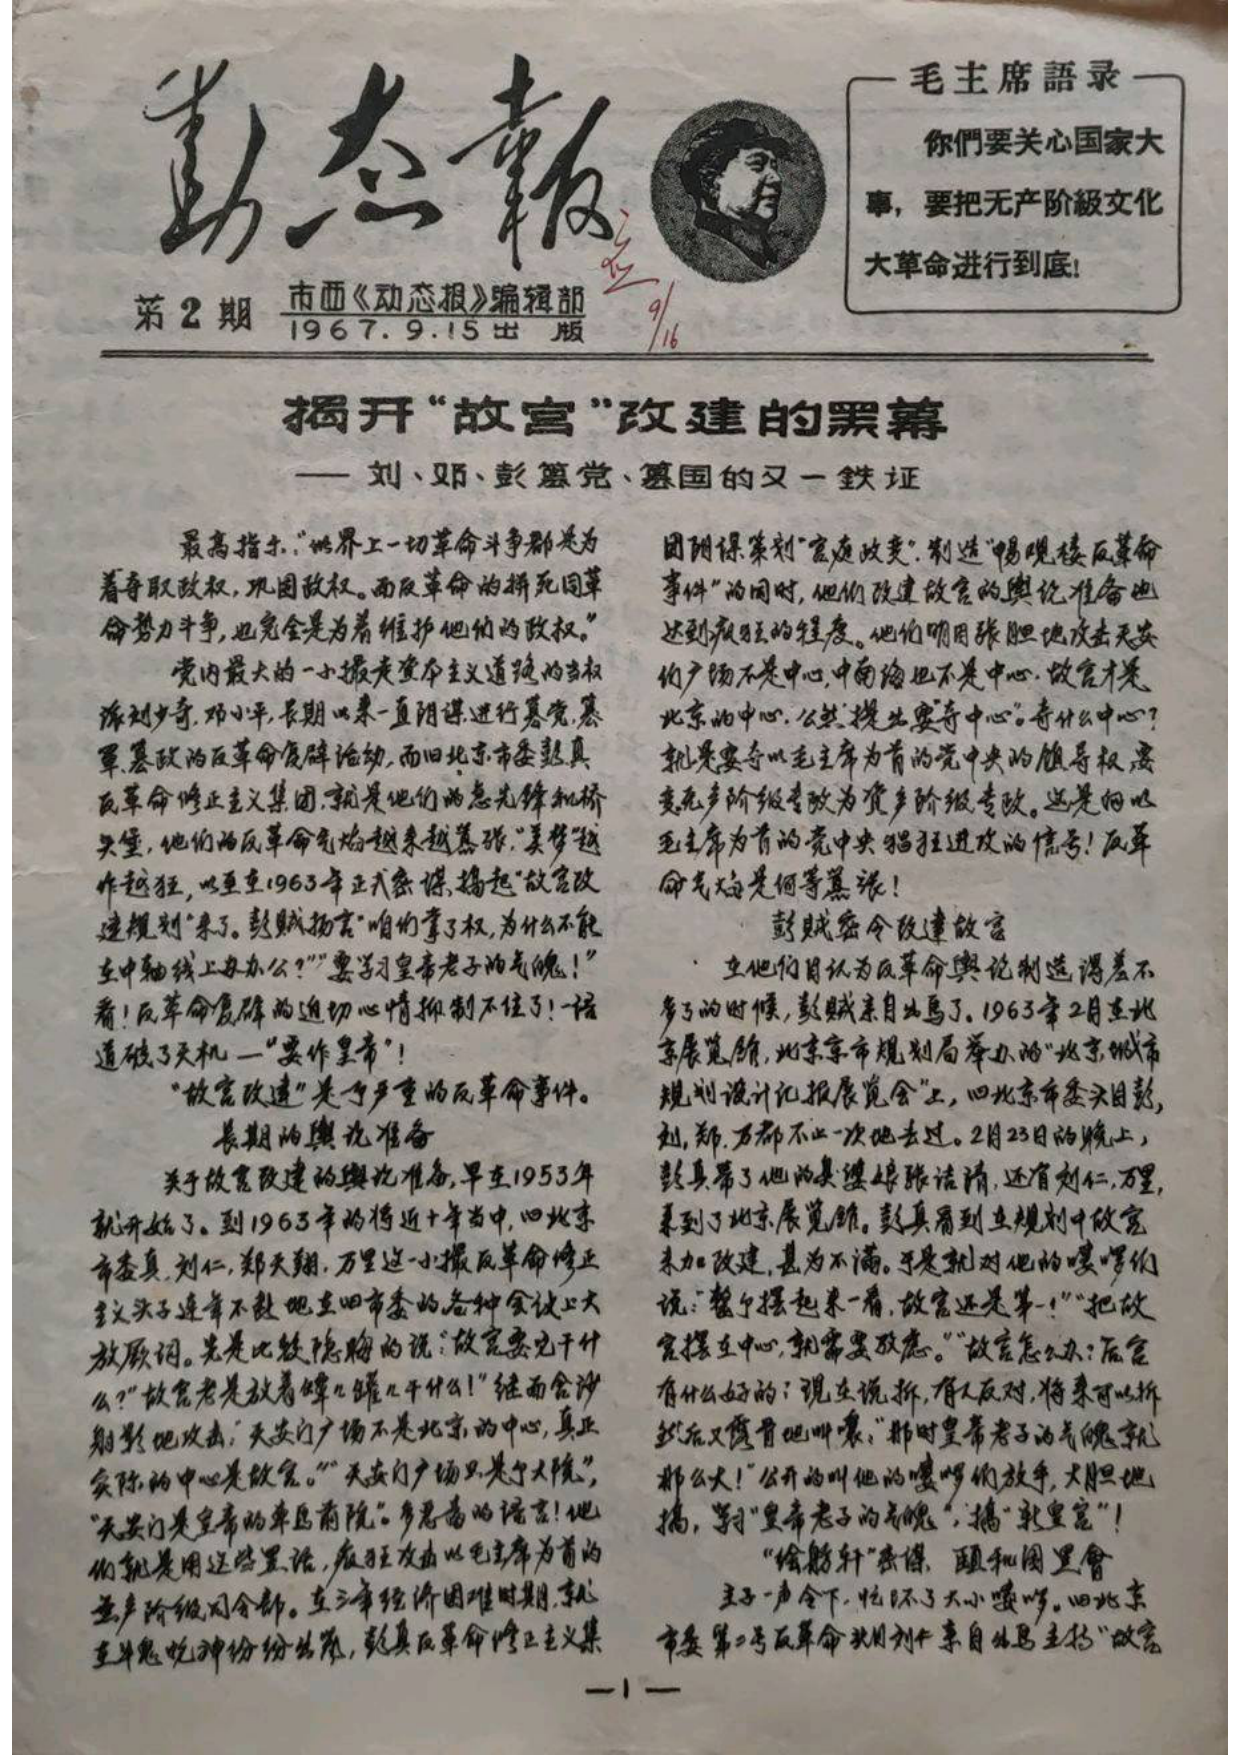 动态報
毛主席語录
你們要关心国家大
事，要把无产阶級文化
大革命进行到底!
9/16
第2期
市西《动态报》编辑部
1967.9.15出 版
揭开“故宫”改建的黑幕
——刘、邓、彭篡党、篡国的又一鉄证
最高指示:“世界上一切革命斗争都是为
着夺取政权，巩固政权。而反革命的拼死同革
命势力斗争，也完全是为着维护他们的政权。”
党内最大的一小撮走资本主义道路的当权
派刘少奇.邓小平,长期以来一直阴谋进行篡党.篡
軍.篡政的反革命复辟活动,而旧北京市委彭真
反革命修正主义集团,就是他们的急先锋和桥
头堡,他们的反革命气焰越来越嚣张,“美梦”越
作越狂,以至至1963年正式密谋,搞起“故宫改
建规划”来了。彭贼扬言“咱们掌了权,为什么不能
在中軸线上办办公？”“要学习皇帝老子的气魄！”
看！反革命复辟的迫切心情抑制不住了！一语
道破了天机—“要作皇帝”！
“故宫改建”是个严重的反革命事件。
长期的舆论准备
关于故宫改建的舆论准备,早在1953年
就开始了。到1963年的将近十年当中,旧北京
市委真.刘仁,郑天翔.万里这一小撮反革命修正
主义头子连年不断地在旧市委的各种会议上大
放厥词。先是比较隐晦的说:“故宫要它干什
么？”“故宫老是放着罈々罐々干什么！”继而含沙
射影地攻击:“天安门广场不是北京的中心,真正
实际的中心是故宫。”“天安门广场只是个大院”,
“天安门是皇帝的車马前院”。多恶毒的语言！他
们就是用这些黑话,疯狂攻击以毛主席为首的
無产阶级司令部。在三年经济困难时期,就
在牛鬼蛇神纷纷出笼,彭真反革命修正主义集
团阴谋策划“宫庭政变”.制造“畅观楼反革命
事件”的同时,他们改建故宫的舆论准备也
达到疯狂的程度。他们明目张胆地攻击天安
们广场不是中心,中南海也不是中心.故宫才是
北京的中心.公然提出要“夺中心”。夺什么中心？
就是要夺以毛主席为首的党中央的領导权,要
变无产阶级专政为资产阶级专政。这是向以
毛主席为首的党中央猖狂进攻的信号！反革
命气焰是何等嚣张！
彭贼密令改建故宫
在他们自认为反革命舆论制造得差不
多了的时候,彭贼亲自出马了。1963年2月在北
京展览馆,北京京市规划局举办的“北京城市
规划设计汇报展览会”上,旧北京市委头目彭,
刘,郑.万都不止一次地去过。2月23日的晚上,
彭真带了他的臭婆娘张洁清,还有刘仁,万里,
来到了北京展览馆。彭真看到在规划中故宫
未加改建,甚为不满。于是就对他的嘍啰们
说:“整个摆起来一看,故宫还是第一！”“把故
宫摆在中心,就需要考虑。”“故宫怎么办?后宫
有什么好的;现在说拆,有人反对,将来可以拆
然后又露骨地叫嚷:“那时皇帝老子的气魄就
那么大！”公开的叫他的嘍啰们放手,大胆地
搞,学习“皇帝老子的气魄”,搞“新皇宫”！
“绘舫轩”密谋 頤和园黑會
主子一声令下.忙坏了大小嘍啰。旧北京
市委第二号反革命头目刘仁亲自出马主持“故宫
—1—